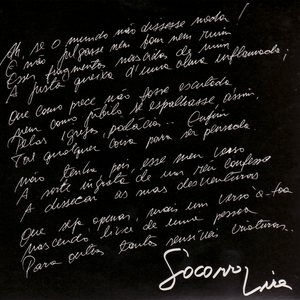 Ah, se o mundo não dissesse nada!
E não julgasse nem bom nem ruim
Esses fragmentos nascidos de mim
A justa queixa d'uma alma inflamada;
Que como prece não fosse escutada
Nem como júbilo se espalhasse, assim,
Pelas igrejas, palácios... Enfim
Tal qualquer coisa para ser pensada.
Não tenha, pois, esse meu verso
A sorte ingrata de um réu confesso
A dissecar as suas desventuras
Que seja apenas, mais um verso à-toa
Nascendo livre de uma pessoa
Para outras tantas sensíveis criaturas.
Socorro Lira